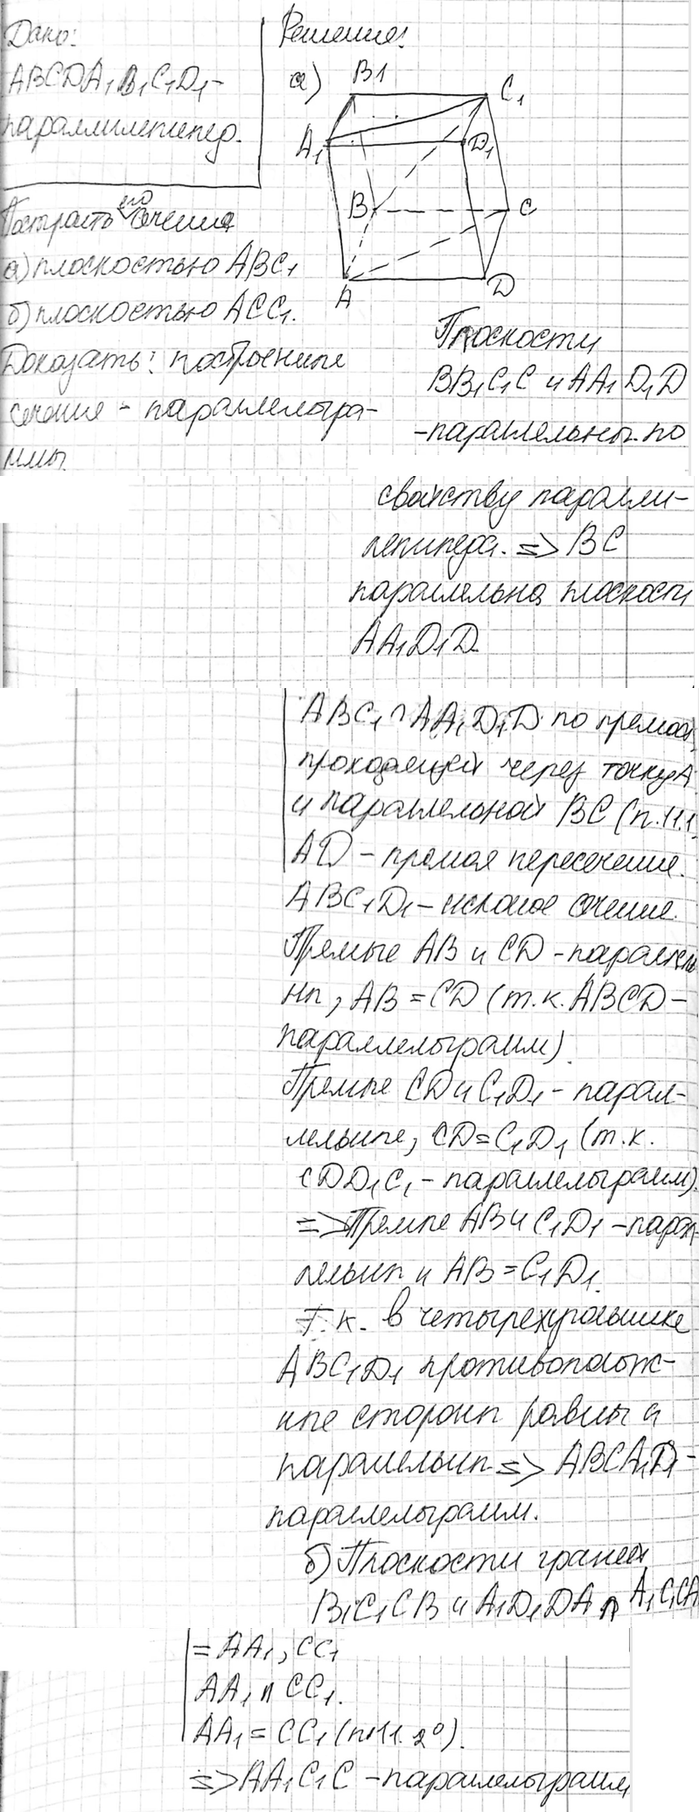 Дано:
ABCDA₁B₁C₁D₁-
параллилепипед.
Построить его сечения
а) плоскостью ABC₁
б) плоскостью ACC₁.
Доказать: построенные
сечение - параллелогра-
ммы.
Решение:
а)
B1
C₁
A₁
D₁
B
C
A
D
Плоскости
BB₁C₁C и AA₁D₁D
-параллельны по
свойству паралли-
лепипеда. => BC
параллельна плоскости
AA₁D₁D.
ABC₁ ∩ AA₁D₁D по прямой,
проходящей через точку A
и параллельной BC (п.11.1
AD - прямая пересечение.
ABC₁D₁ - искомое сечение.
Прямые AB и CD - параллель
ны, AB = CD (т.к. ABCD -
параллелограмм).
Прямые CD и C₁D₁ - парал-
лельные, CD = C₁D₁ (т.к.
CDD₁C₁ - параллелограмм).
=> Прямые AB и C₁D₁ - парал-
лельны и AB = C₁D₁.
Т.к. в четырехугольнике
ABC₁D₁ противополож-
ные стороны равны и
параллельны => ABCA₁D₁ -
параллелограмм.
б) Плоскости граней
B₁C₁CB и A₁D₁DA ∩ A₁C₁CA
= AA₁, CC₁
AA₁ и CC₁.
AA₁ = CC₁ (п.11. 2⁰).
=> AA₁C₁C - параллелограмм